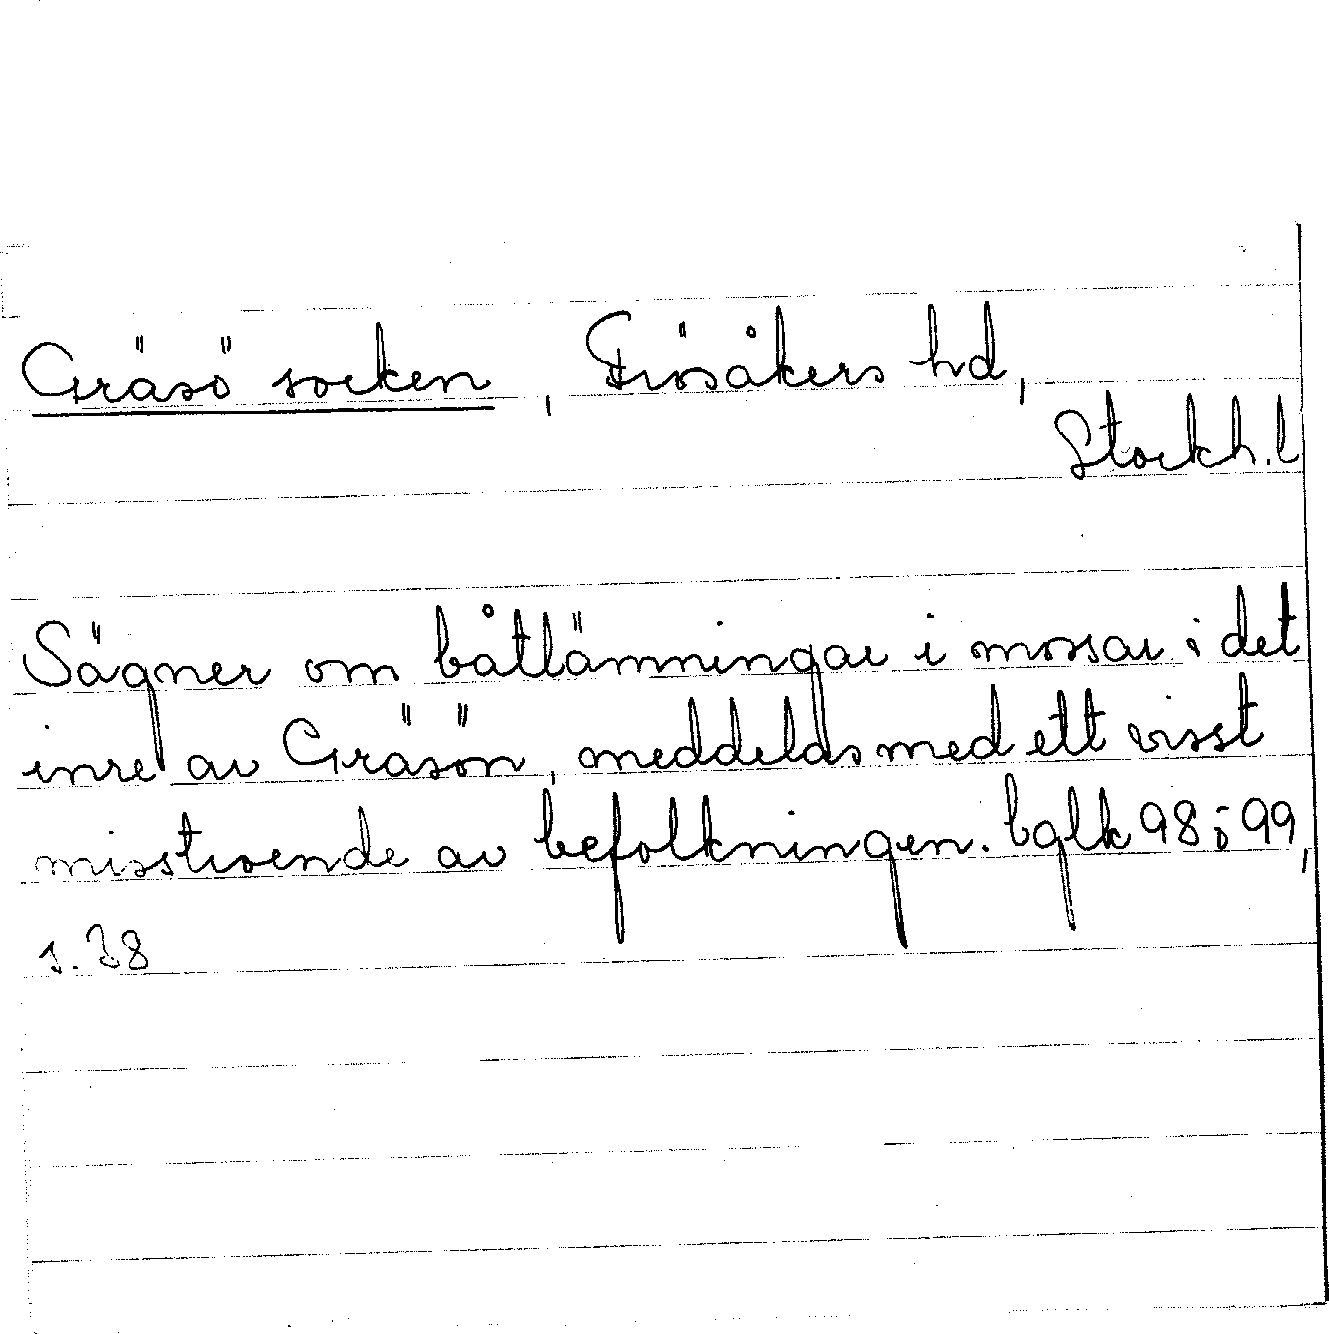 Gräsö socken, Frösåkers hd,
Stockh. l
Sägner om båtlämningar i mossar i det
inre av Gräsön, meddelds med ett visst
misstroende av befolkningen. bglk 98 ö 99,
s. 38